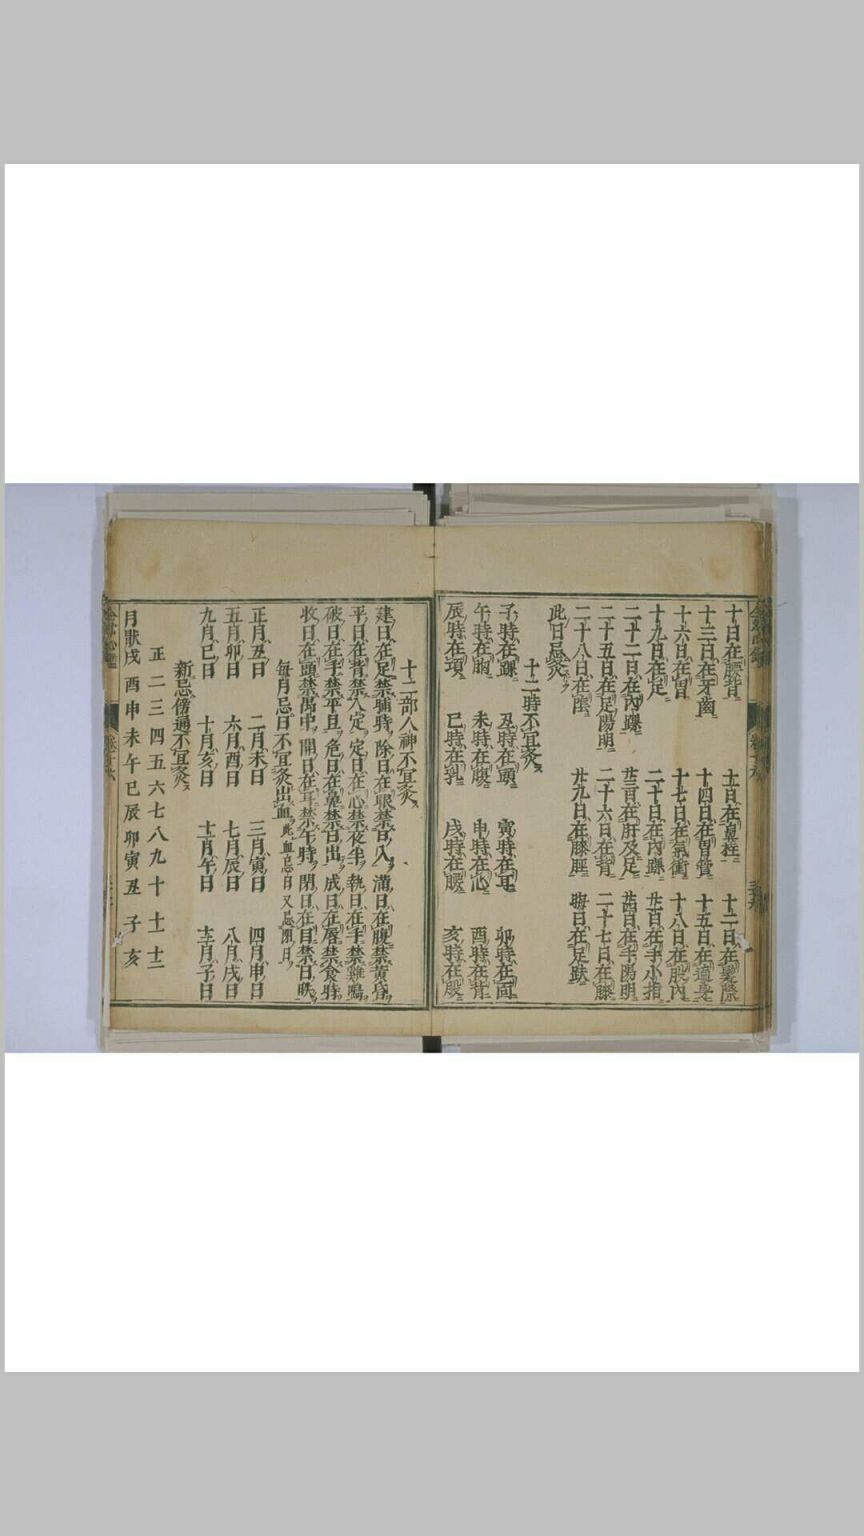 十日在腰背 十一日在鼻柱 十二日在髮際
十三日在牙齒 十四日在胃脘 十五日在遍身
十六日在胃 十七日在氣衝 十八日在股內
十九日在足 二十日在內踝 廿一日在手小指
二十二日在內踝 廿三日在肝及足 廿四日在手陽明
二十五日在足陽明 二十六日在背 二十七日在膝
二十八日在陰 廿九日在膝脛 晦日在足趺
此日忌灸
十二時不宜灸
子時在踝 丑時在頭 寅時在耳 卯時在面
午時在胸 未時在腹 申時在心 酉時在背
辰時在項 巳時在乳 戌時在腰 亥時在股
十二部人神不宜灸
建日在足禁晡時 除日在眼禁日入 滿日在腹禁黃昏
平日在背禁人定 定日在心禁夜半 執日在手禁雞鳴
破日在手禁平旦 危日在鼻禁日出 成日在唇禁食時
收日在頭禁禺中 開日在耳禁午時 閉日在目禁日昳
每月忌日不宜灸出血 此血忌日又忌閉日
正月丑日 二月未日 三月寅日 四月申日
五月卯日 六月酉日 七月辰日 八月戌日
九月巳日 十月亥日 十一月午日 十二月子日
新忌傍通不宜灸
正 二 三 四 五 六 七 八 九 十 十一 十二
月猒戌 酉 申 未 午 巳 辰 卯 寅 丑 子 亥